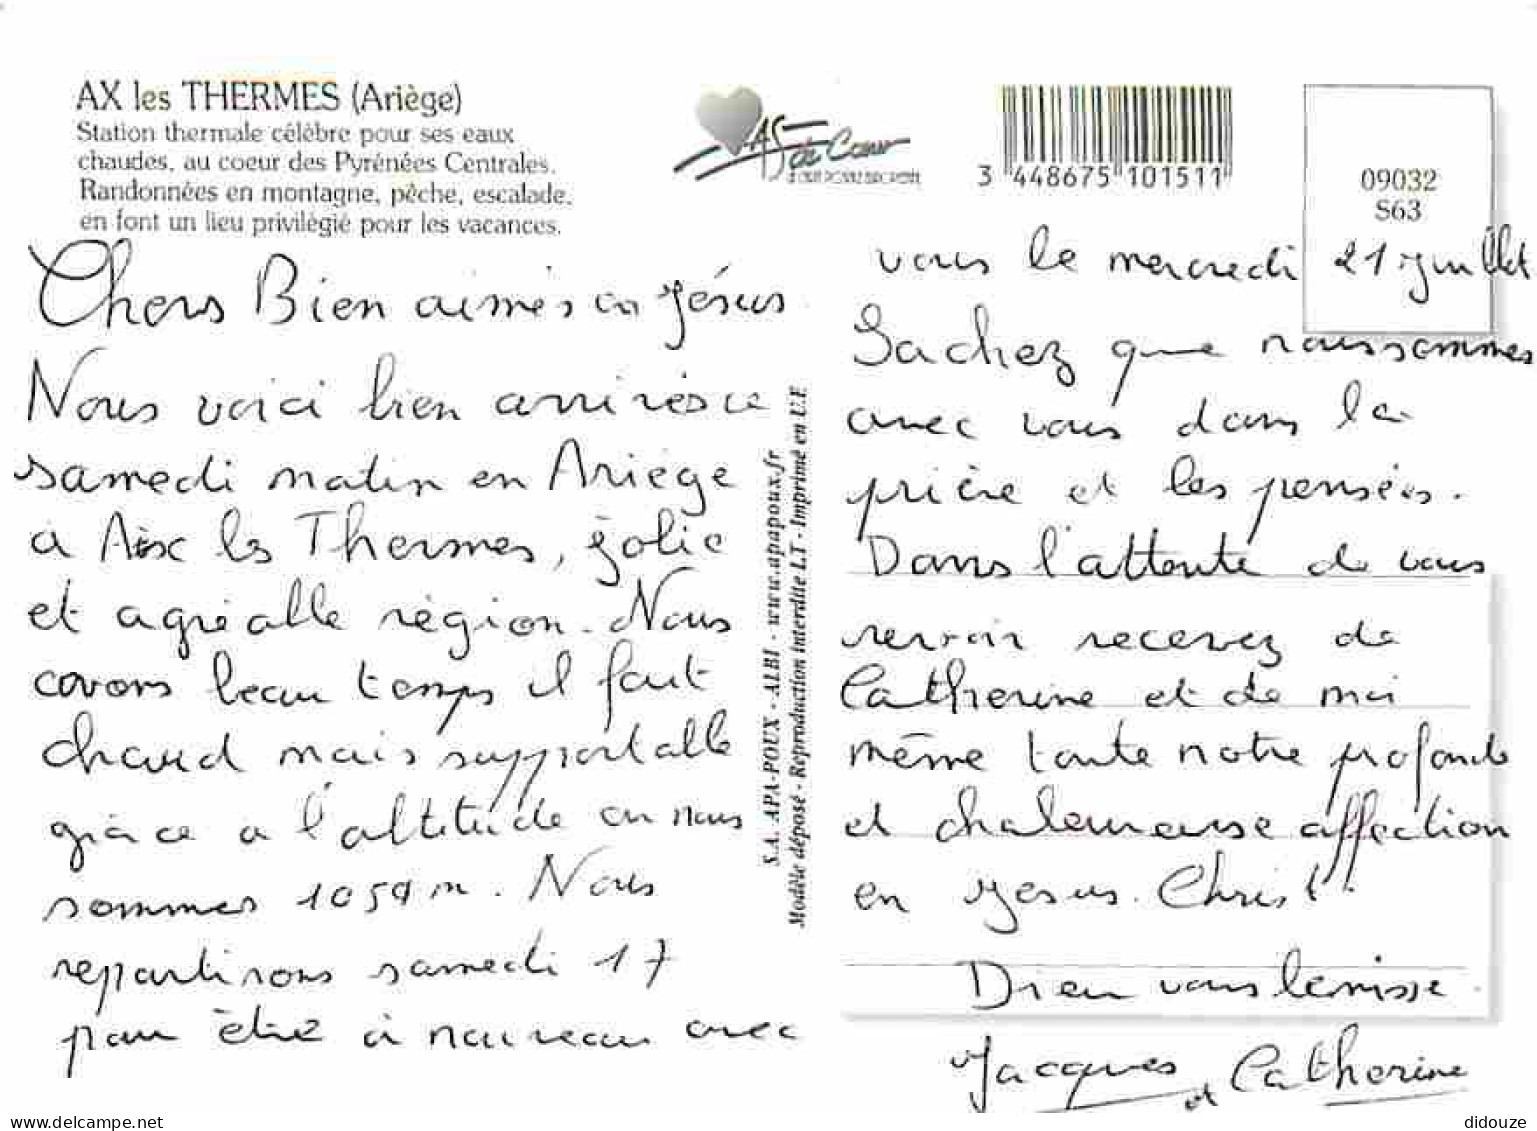 AX les THERMES (Ariège)
Station thermale célèbre pour ses eaux
chaudes, au coeur des Pyrénées Centrales.
Randonnées en montagne, pêche, escalade,
en font un lieu privilégié pour les vacances.
As de Coeur
3 448675 101511
09032
S63
Chers Bien aimés en Jésus
Nous voici bien arrivés ce
samedi matin en Ariège
à Aix les Thermes, jolie
et agréable région. Nous
avons beau temps il fait
chaud mais supportable
grâce a l'altitude on nous
sommes 1050 m. Nous
repartirons samedi 17
pour être à nouveau avec
S.A. APA-POUX - ALBI - www.apapoux.fr
Modèle déposé - Reproduction interdite L.T - Imprimé en U.E
vous le mercredi 21 juillet
Sachez que nous sommes
avec vous dans la
prière et les pensées.
Dans l'attente de vous
revoir recevez de
Catherine et de moi
même toute notre profonde
et chaleureuse affection
en Jesus. Christ.
Dieu vous bénisse.
Jacques et Catherine
www.delcampe.net
didouze